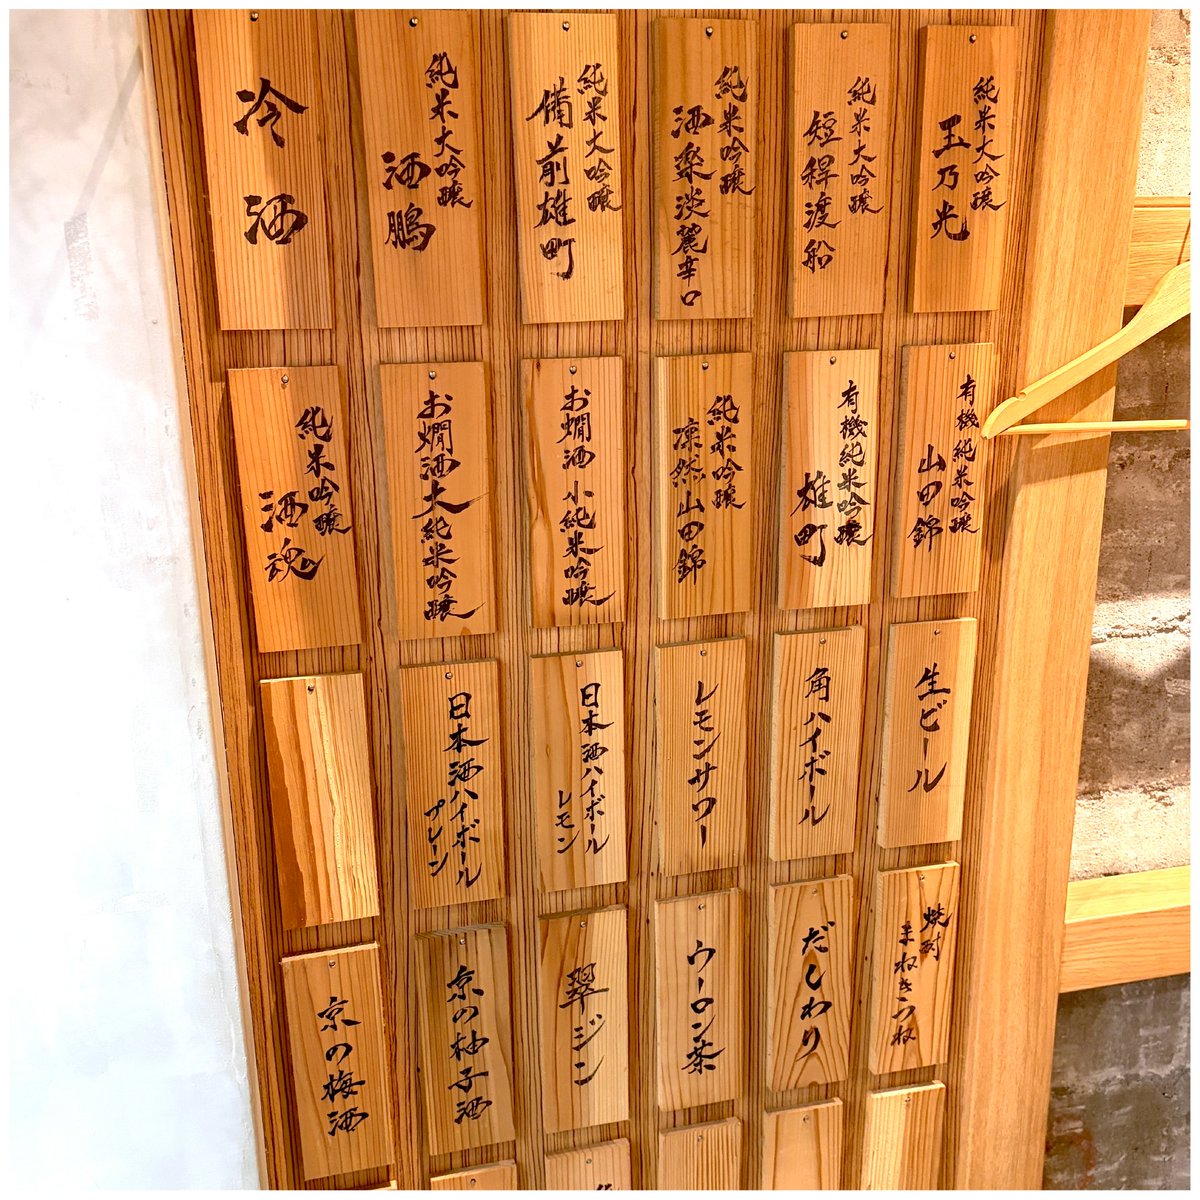 純米大吟醸
玉乃光
純米大吟醸
短稈渡船
純米吟醸
酒楽淡麗辛口
純米大吟醸
備前雄町
純米大吟醸
酒鵬
冷酒
有機純米吟醸
山田錦
有機純米吟醸
雄町
純米吟醸
凜然山田錦
お燗酒 小純米吟醸
お燗酒 大純米吟醸
純米吟醸
酒魂
生ビール
角ハイボール
レモンサワー
日本酒ハイボール
レモン
日本酒ハイボール
プレーン
焼酎
まねきつね
だしわり
ウーロン茶
翠ジン
京の柚子酒
京の梅酒